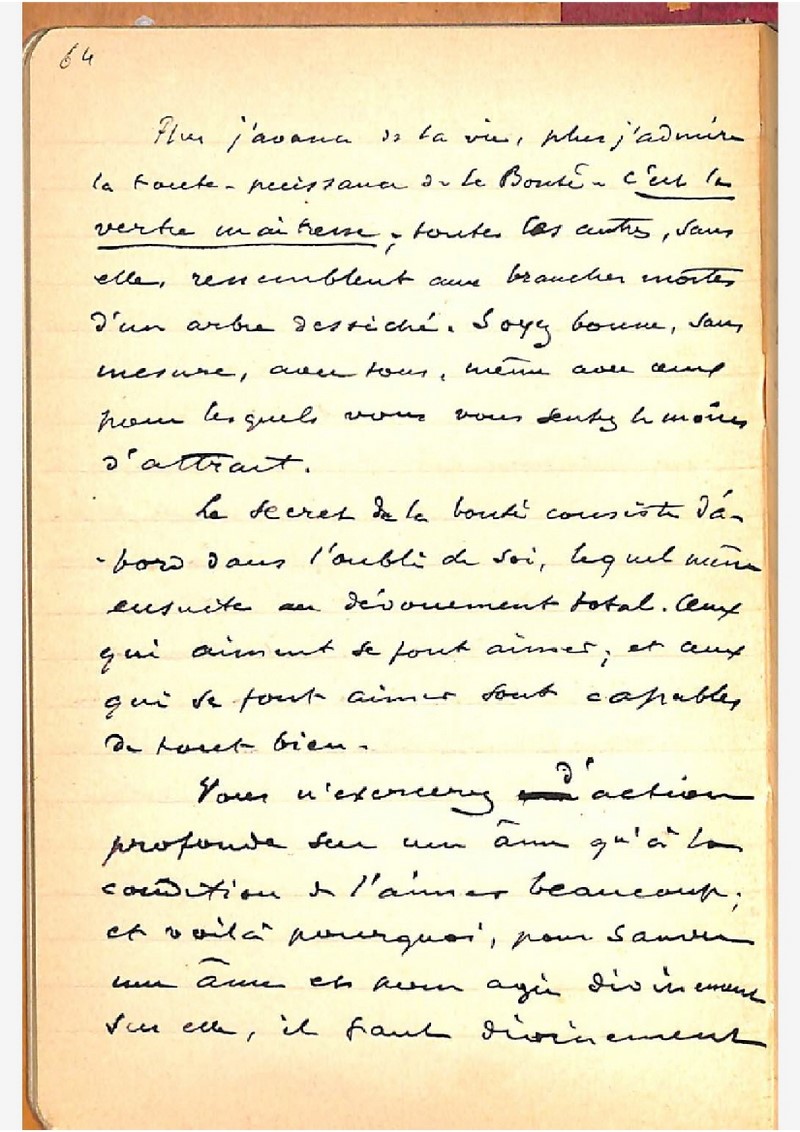 64
Plus j'avance de la vie, plus j'admire
la toute-puissance de la Bonté - c'est la
vertu maîtresse ; toutes les autres, sans
elle, ressemblent aux branches mortes
d'un arbre desséché. Soyez bonne, sans
mesure, avec tous, même avec ceux
pour lesquels vous vous sentez le moins
d'attrait.
Le secret de la bonté consiste d'a-
-bord dans l'oubli de soi, lequel mène
ensuite au dévouement total. Ceux
qui aiment se font aimer ; et ceux
qui se font aimer sont capables
de tout bien.
Vous n'exercerez d'action
profonde sur une âme qu'à la
condition de l'aimer beaucoup ;
et voilà pourquoi, pour sauver
une âme et pour agir divinement
sur elle, il faut divinement